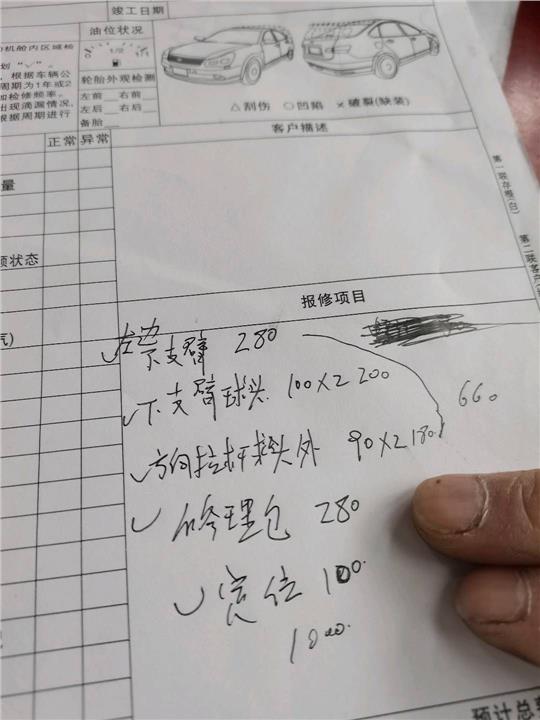 竣工日期
油位状况
1/2
轮胎外观检测
左前 右前
左后 右后
备胎
机舱内区域检
划“✓”。
，根据车辆公
周期为1年或2
加检修频率。
出现滴漏情况，
根据周期进行
△刮伤 ○凹陷 ×破裂(缺装)
正常 异常
客户描述
量
状态
气)
第一联存根(白)
第二联客
报修项目
✓左边下支臂 280
✓下支臂球头 100X2 200
660
✓方向拉杆球头外 90X2 180
✓修理包 280
✓定位 100.
1000.
预计总